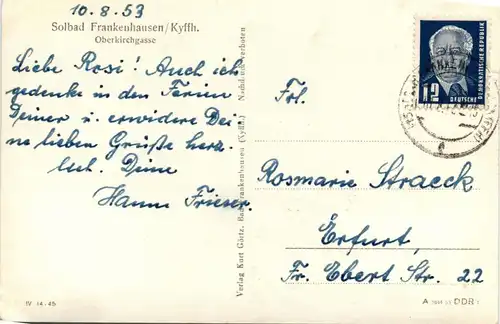 10.8.53
Solbad Frankenhausen/Kyffh.
Oberkirchgasse
Liebe Rosi! Auch ich
gedenke in den Ferien
Deiner u. erwidere Dei-
ne lieben Grüße herz-
lich. Deine
Hanna Frieser.
Verlag Kurt Görtz, Bad Frankenhausen (Kyffh.) Nachdruck verboten
DEUTSCHE
DEMOKRATISCHE REPUBLIK
12
Frl.
Rosmarie Straeck
Erfurt,
Fr. Ebert Str. 22
IV 14-45
A DDR